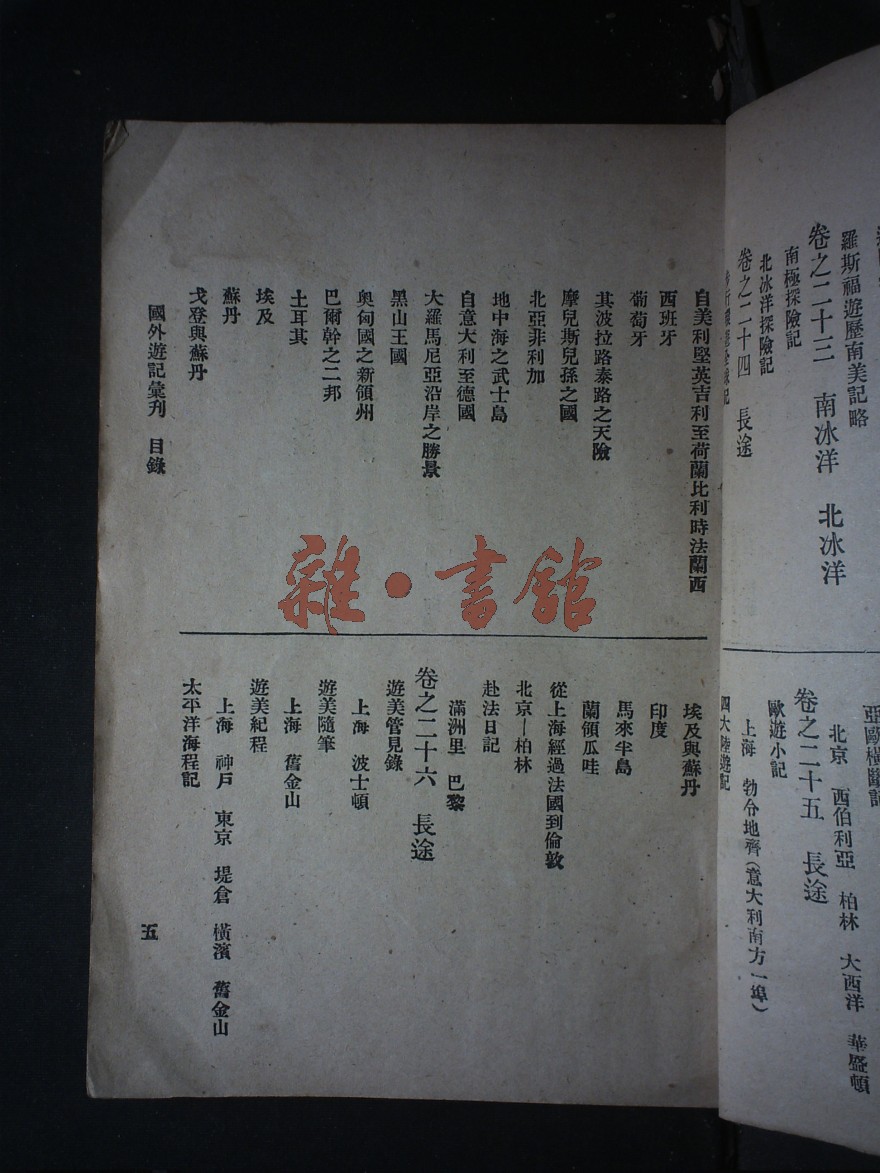 羅斯福遊歷南美記略
卷之二十三　南冰洋　北冰洋
南極探險記
北冰洋探險記
卷之二十四　長途
亞歐橫斷記
北京　西伯利亞　柏林　大西洋　華盛頓
卷之二十五　長途
歐遊小記
上海　勃令地齊（意大利南方一埠）
四大陸遊記
自美利堅英吉利至荷蘭比利時法蘭西
西班牙
葡萄牙
其波拉路泰路之天險
摩兒斯兒孫之國
北亞非利加
地中海之武士島
自意大利至德國
大羅馬尼亞沿岸之勝景
黑山王國
奧匈國之新領州
巴爾幹之二邦
土耳其
埃及
蘇丹
戈登與蘇丹
埃及與蘇丹
印度
馬來半島
蘭領瓜哇
從上海經過法國到倫敦
北京—柏林
赴法日記
滿洲里　巴黎
卷之二十六　長途
遊美管見錄
上海　波士頓
遊美隨筆
上海　舊金山
遊美紀程
上海　神戶　東京　堤倉　橫濱　舊金山
太平洋海程記
國外遊記彙刋　目錄
五
雜·書館